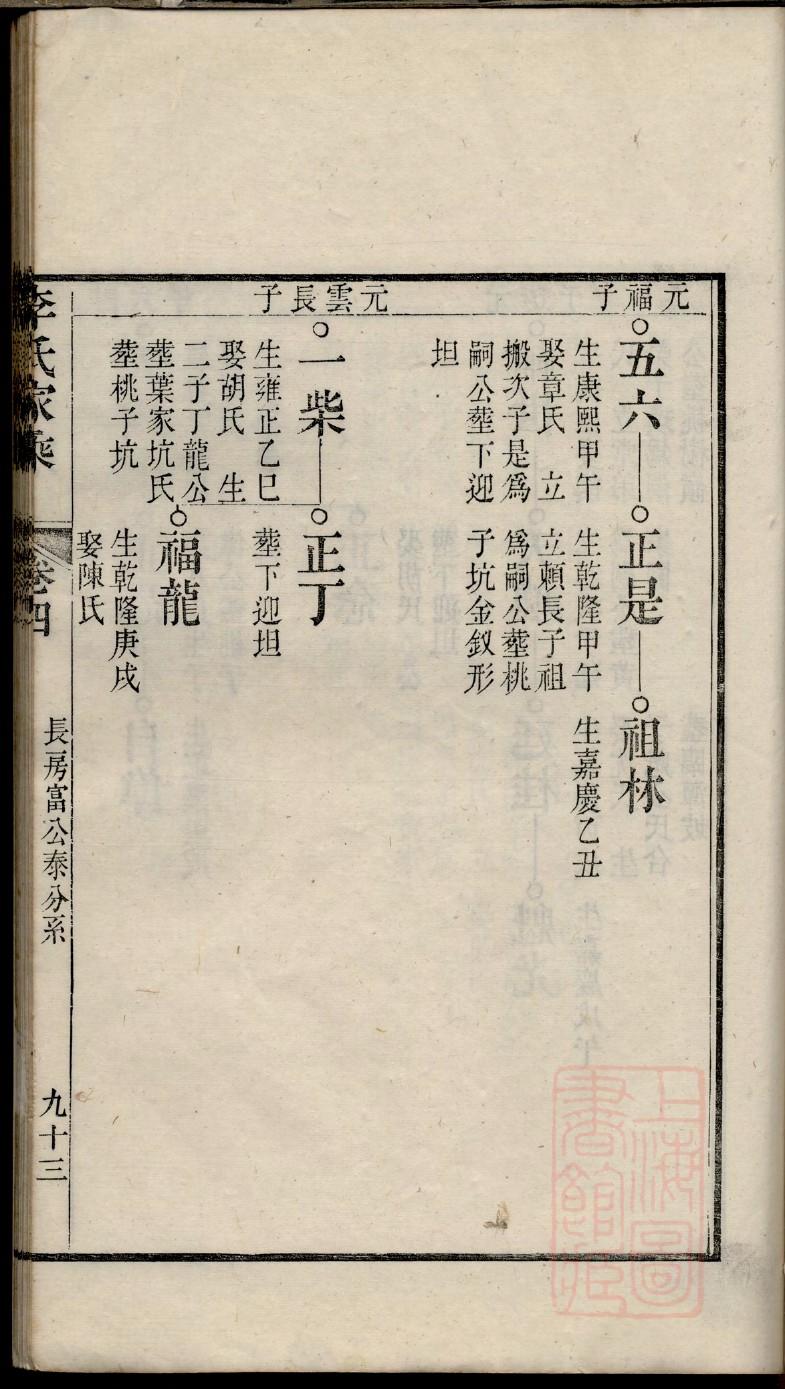 元福子
五六
生康熙甲午
娶章氏　立
搬次子是爲
嗣公塟下迎
坦
正是
生乾隆甲午
立頼長子祖
爲嗣公塟桃
子坑金釵形
祖林
生嘉慶乙丑
元雲長子
一柴
生雍正乙巳
娶胡氏　生
二子丁龍公
塟葉家坑氏
塟桃子坑
正丁
塟下迎坦
福龍
生乾隆庚戌
娶陳氏
李氏家乘
卷四
長房富公泰分系
九十三
上海圖
書館藏